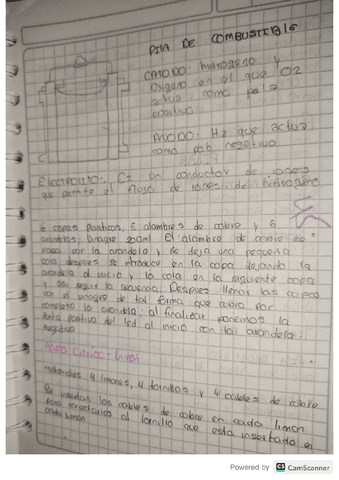 PILA DE COMBUSTIBLE
CATODO: hidrogeno y
Oxigeno en el que O2
actua como polo
positivo
ANODO: H2 que actua
como polo negativo
Electrolito: Es un conductor de iones
que permite el flujo de iones de hidrogeno
6 copas plasticas, 5 alambres de cobre y 6
arandelas, vinagre 200ml El alambre de cobre se
pasa por la arandela y se deja una pequeña
cola, despues se introduce en la copa dejando la
arandela al inicio y la cola en la siguiente copa
y asi seguir la secuencia. Despues llenar las copas
con el vinagre de tal forma que cubra por
completo la arandela, al finalizar ponemos la
punta positiva del led al inicio con las arandelas
negativo
Acido Citrico - Limon
materiales 4 limones, 4 tornillos y 4 cables de cobre
Se insertan los cables de cobre en cada limon
para conectarlos al tornillo que esta insertado en
cada limon
Powered by CS CamScanner